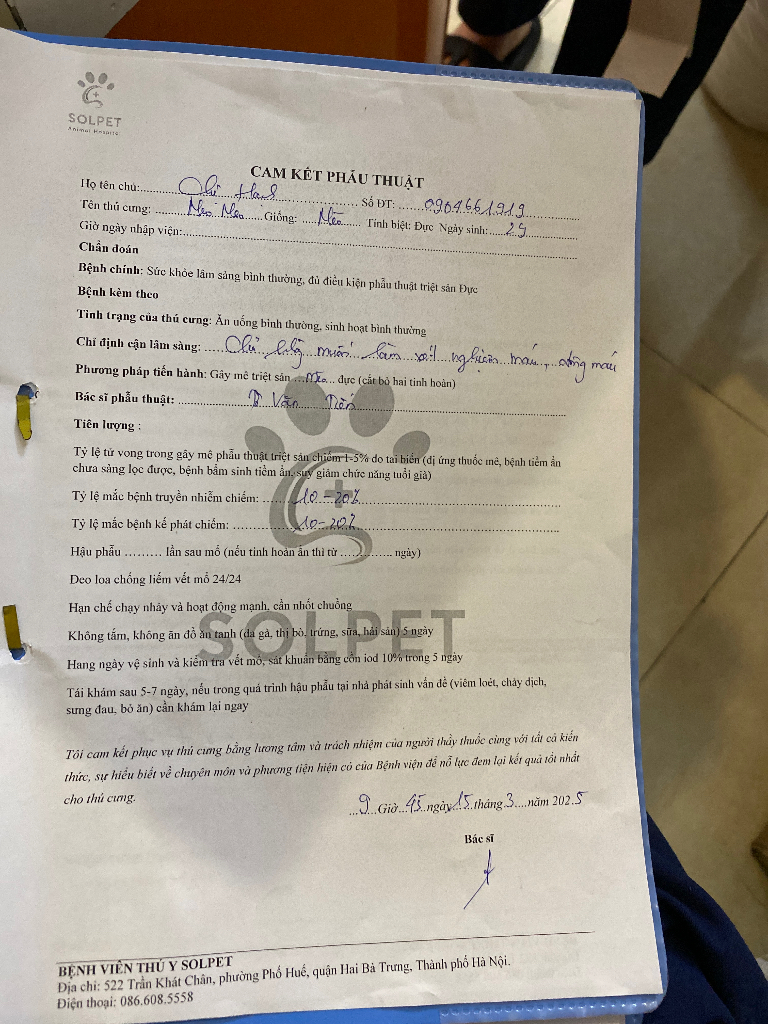 SOLPET
Animal Hospital
CAM KẾT PHẪU THUẬT
Họ tên chủ: Số ĐT: 0904661919
Tên thú cưng: Meo Meo Giống: Mèo Tính biệt: Đực Ngày sinh: 2
Giờ ngày nhập viện:
Chẩn đoán
Bệnh chính: Sức khỏe lâm sàng bình thường, đủ điều kiện phẫu thuật triệt sản Đực
Bệnh kèm theo
Tình trạng của thú cưng: Ăn uống bình thường, sinh hoạt bình thường
Chỉ định cận lâm sàng: muốn làm xét nghiệm máu, đông máu
Phương pháp tiến hành: Gây mê triệt sản mèo đực (cắt bỏ hai tinh hoàn)
Bác sĩ phẫu thuật: Văn Tiến
Tiên lượng :
Tỷ lệ tử vong trong gây mê phẫu thuật triệt sản chiếm 1-5% do tai biến (dị ứng thuốc mê, bệnh tiềm ẩn
chưa sàng lọc được, bệnh bẩm sinh tiềm ẩn, suy giảm chức năng tuổi già)
Tỷ lệ mắc bệnh truyền nhiễm chiếm: 10-20%
Tỷ lệ mắc bệnh kế phát chiếm: 10-20%
Hậu phẫu ......... lần sau mổ (nếu tinh hoàn ẩn thì từ ............. ngày)
Đeo loa chống liếm vết mổ 24/24
Hạn chế chạy nhảy và hoạt động mạnh, cần nhốt chuồng
Không tắm, không ăn đồ ăn tanh (da gà, thị bò, trứng, sữa, hải sản) 5 ngày
Hang ngày vệ sinh và kiểm tra vết mổ, sát khuẩn bằng cồn iod 10% trong 5 ngày
Tái khám sau 5-7 ngày, nếu trong quá trình hậu phẫu tại nhà phát sinh vấn đề (viêm loét, chảy dịch,
sưng đau, bỏ ăn) cần khám lại ngay
SOLPET
Tôi cam kết phục vụ thú cưng bằng lương tâm và trách nhiệm của người thầy thuốc cùng với tất cả kiến
thức, sự hiểu biết về chuyên môn và phương tiện hiện có của Bệnh viện để nỗ lực đem lại kết quả tốt nhất
cho thú cưng.
9 Giờ 45 ngày 15 tháng 3 năm 2025
Bác sĩ
BỆNH VIỆN THÚ Y SOLPET
Địa chỉ: 522 Trần Khát Chân, phường Phố Huế, quận Hai Bà Trưng, Thành phố Hà Nội.
Điện thoại: 086.608.5558